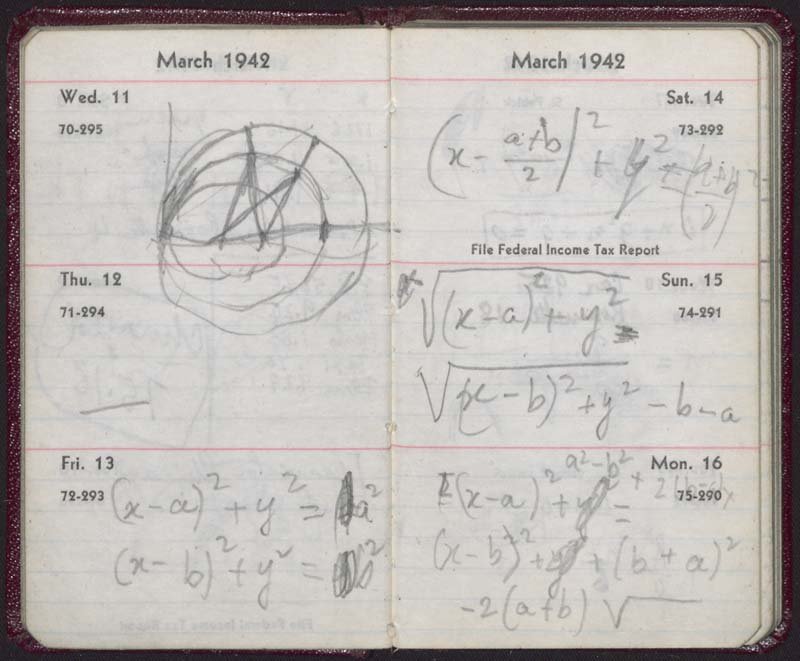 March 1942
Wed. 11
70-295
Thu. 12
71-294
Fri. 13
72-293
(x-a)² + y² = a²
(x-b)² + y² = b²
March 1942
Sat. 14
73-292
(x - (a+b)/2)² + y² = ((a+b)/2)²
File Federal Income Tax Report
Sun. 15
74-291
√((x-a)² + y²) =
√((x-b)² + y²) - b-a
Mon. 16
75-290
a²-b²
(x-a)² + y² =
(x-b)² + y² + (b+a)²
-2(a+b) √